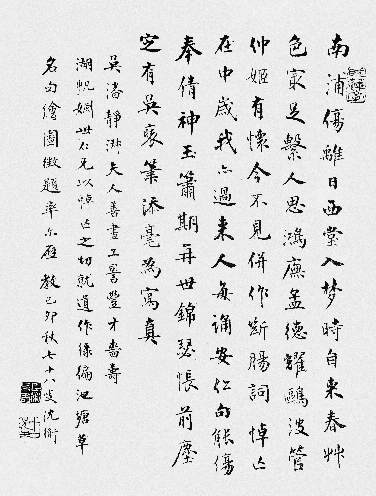 南浦傷離日西堂入夢時自來春艸
色最足繫人思鴻廡孟德耀鷗波管
仲姬有懷今不見併作斷腸詞悼亡
在中歲我亦過來人每誦安仁句能傷
奉倩神玉簫期再世錦瑟悵前塵
定有吳裝筆添毫為寫真
吳潘靜淑夫人善畫工書豐才嗇壽
湖帆姻世仁兄以悼亡之切就遺作綠徧池塘草
名句繪圖徵題率爾應教己卯秋七十八叟沈衛